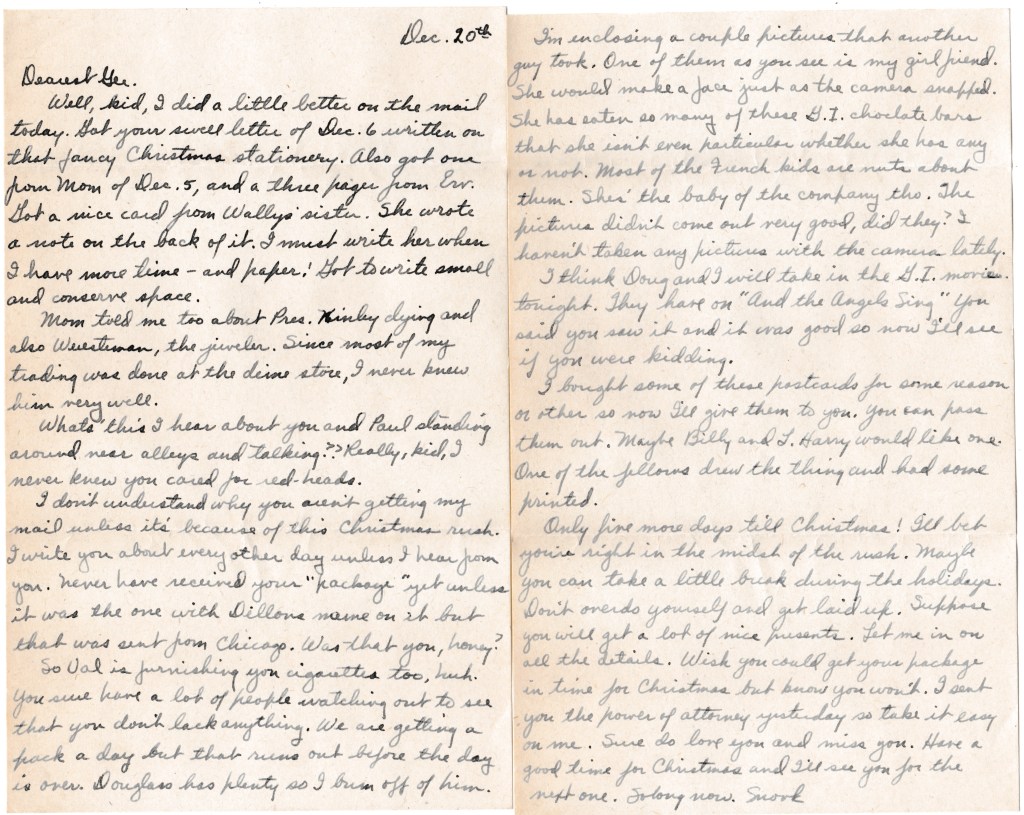 Dec. 20th
Dearest Gee.
Well, kid, I did a little better on the mail
today. Got your swell letter of Dec. 6 written on
that fancy Christmas stationery. Also got one
from Mom of Dec. 5, and a three pager from Erv.
Got a nice card from Wallys' sister. She wrote
a note on the back of it. I must write her when
I have more time – and paper! Got to write small
and conserve space.
Mom told me too about Pres. Kinley dying and
also the juweler. Since most of my
trading was done at the dime store, I never knew
him very well.
Whats' this I hear about you and Paul standing
around near alleys and talking?? Really, kid, I
never knew you cared for red-heads.
I don't understand why you aren't getting my
mail unless its' because of this Christmas rush.
I write you about every other day unless I hear from
you. Never have received your "package" yet unless
it was the one with Dillons name on it but
that was sent from Chicago. Was that you, honey?
So Val is furnishing you cigarettes too, huh.
You sure have a lot of people watching out to see
that you don't lack anything. We are getting a
pack a day but that runs out before the day
is over. Douglass has plenty so I bum off of him.
I'm enclosing a couple pictures that another
guy took. One of them as you see is my girl friend.
She would make a face just as the camera snapped.
She has eaten so many of these G.I. choclate bars
that she isn't even particular whether she has any
or not. Most of the French kids are nuts about
them. Shes' the baby of the company tho. The
pictures didn't come out very good, did they? I
haven't taken any pictures with the camera lately.
I think Doug and I will take in the G.I. movie
tonight. They have on "And the Angels Sing" You
said you saw it and it was good so now I'll see
if you were kidding.
I bought some of these postcards for some reason
or other so now I'll give them to you. You can pass
them out. Maybe Billy and L. Harry would like one.
One of the fellows drew the thing and had some
printed.
Only five more days till Christmas! I'll bet
you're right in the midst of the rush. Maybe
you can take a little break during the holidays.
Don't overdo yourself and get laid up. Suppose
you will get a lot of nice presents. Let me in on
all the details. Wish you could get your package
in time for Christmas but know you won't. I sent
you the power of attorney yesterday so take it easy
on me. Sure do love you and miss you. Have a
good time for Christmas and I'll see you for the
next one. So long now. Snork